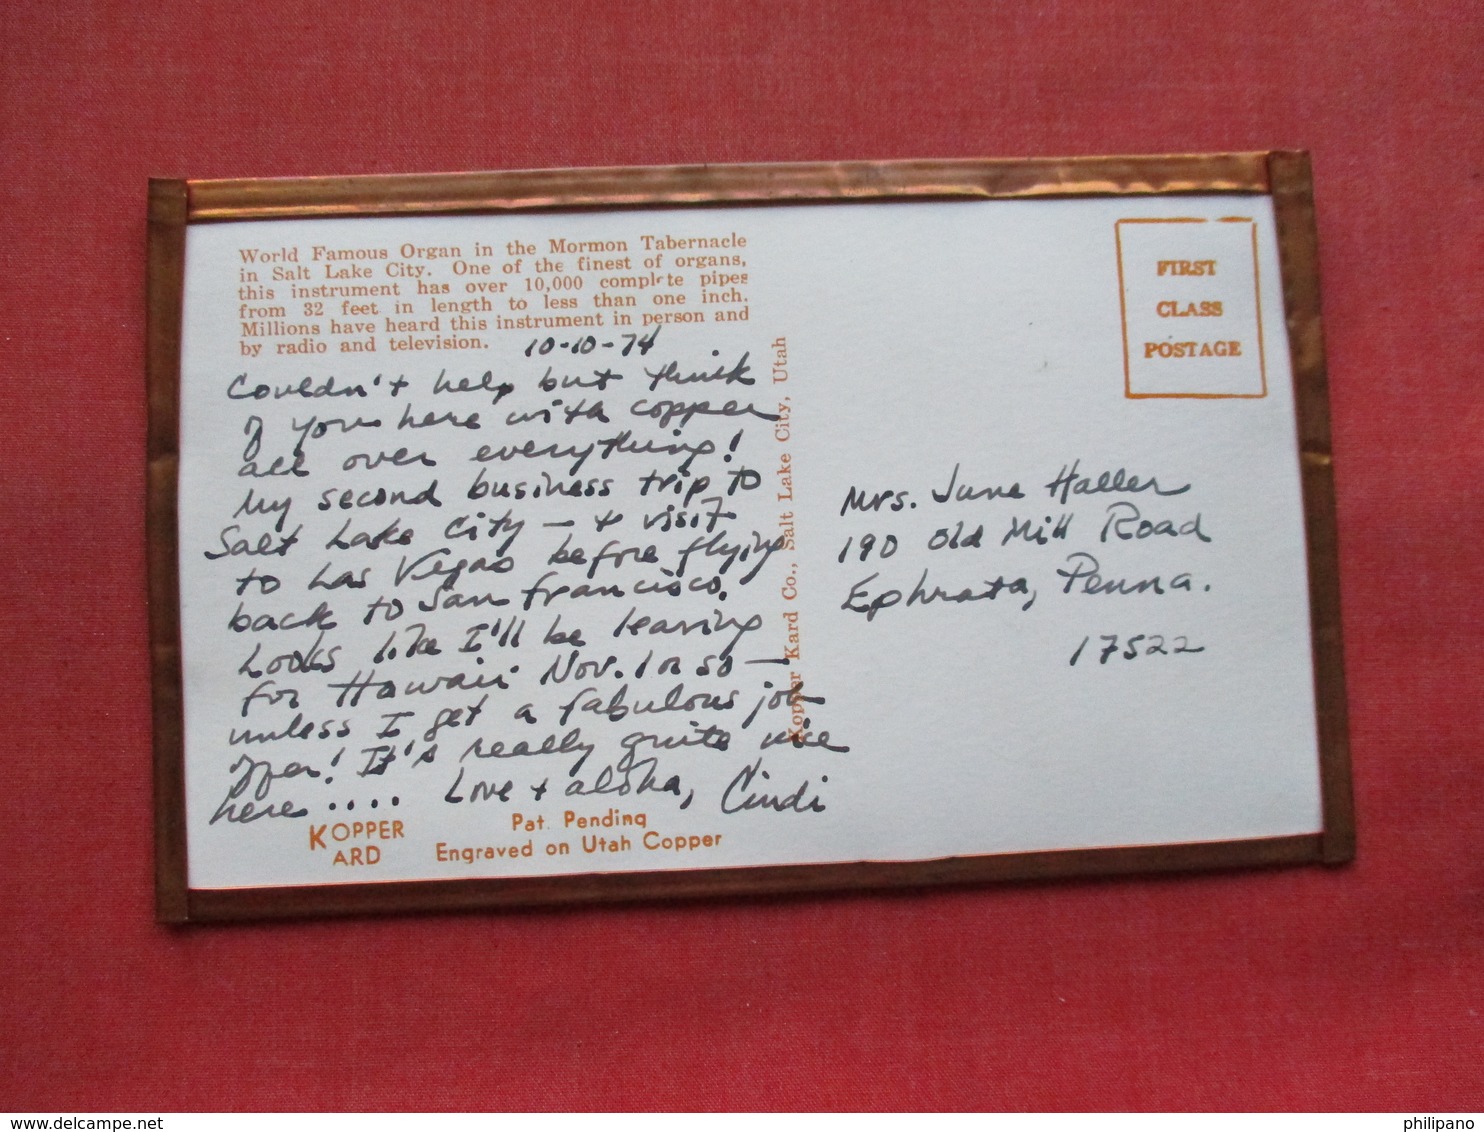 World Famous Organ in the Mormon Tabernacle
in Salt Lake City. One of the finest of organs,
this instrument has over 10,000 complete pipes
from 32 feet in length to less than one inch.
Millions have heard this instrument in person and
by radio and television.
10-10-74
Couldn't help but think
of you here with copper
all over everything!
My second business trip to
Salt Lake City — + visit
to Las Vegas before flying
back to San Francisco.
Looks like I'll be leaving
for Hawaii Nov. 1 or so —
unless I get a fabulous job
offer! It's really quite nice
here .... Love + aloha, Cindi
KOPPER
KARD
Pat. Pending
Engraved on Utah Copper
Kopper Kard Co., Salt Lake City, Utah
FIRST
CLASS
POSTAGE
Mrs. June Haller
190 Old Mill Road
Ephrata, Penna.
17522
delcampe.net
philipano